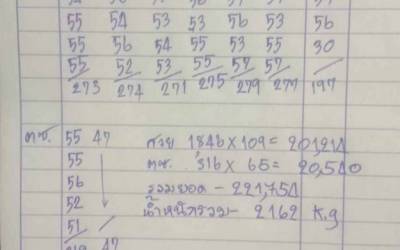 55 54 53 53 56 53 56
55 56 54 55 53 55 30
55 52 53 55 57 57
273 274 271 275 279 277 197
ตซ. 55 47 สวย 1846 x 109 = 201,214
55 ตซ. 316 x 65 = 20,540
56 รวมยอด - 221,754
52 น้ำหนักรวม - 2162 K.g
51
47